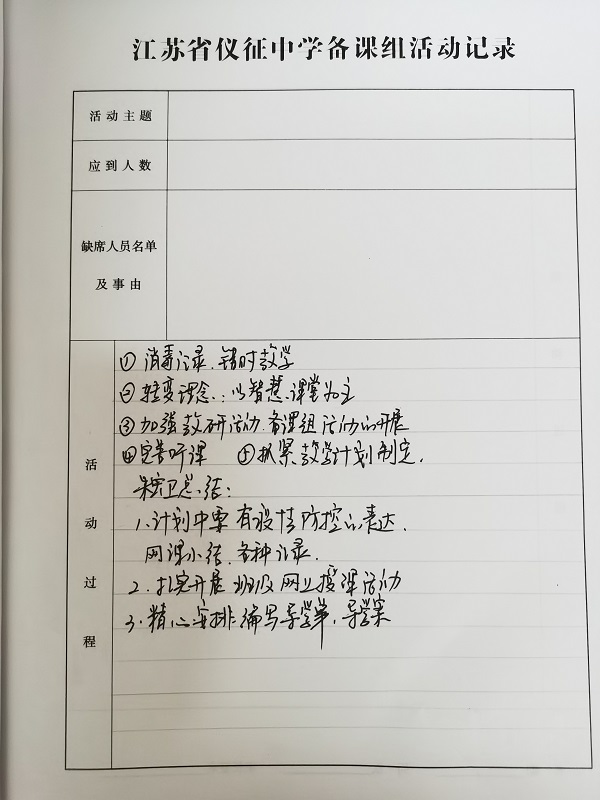 江苏省仪征中学备课组活动记录
活动主题
应到人数
缺席人员名单
及事由
活动过程
① 消毒记录.错时教学
② 转变理念:以智慧课堂为主
③ 加强教研活动.备课组活动的开展
④ 完善听课 ⑤ 抓紧教学计划制定.
总结:
1.计划中要有疫情防控的表达.
网课小结.各种记录.
2.扎实开展班级网上授课活动
3.精心安排编写导学单.导学案